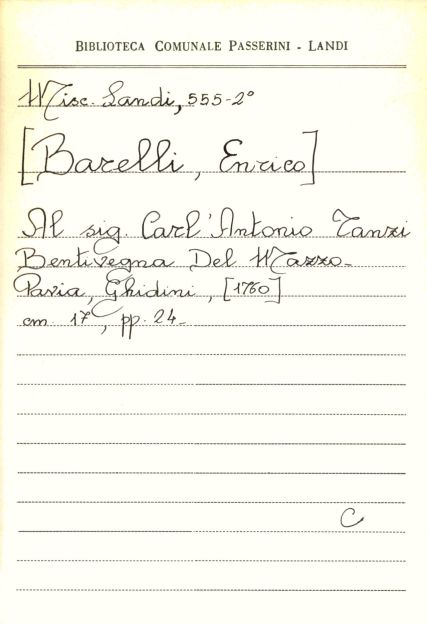 BIBLIOTECA COMUNALE PASSERINI - LANDI
Misc. Landi, 555-2°
[Barelli, Enrico]
Al sig. Carl'Antonio Tanzi
Bentivegna Del Mazzo-
Pavia, Ghidini, [1760]
cm 17, pp. 24-
C